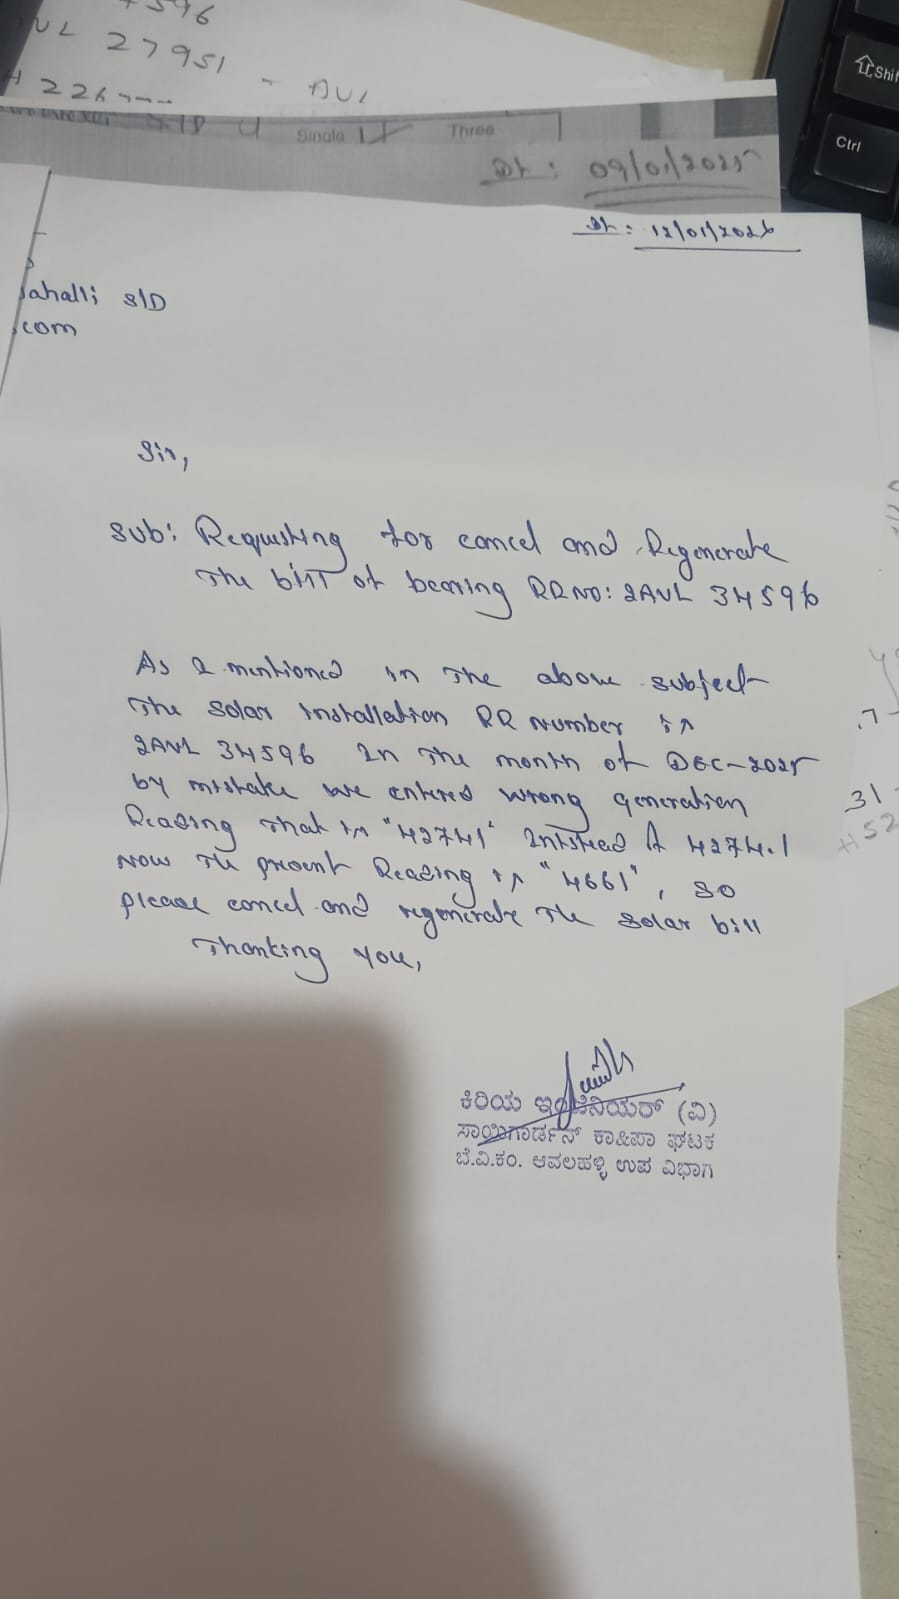 596
UL 27951 - AUL
Single Three
Dt: 09/01/2025
Shift
Ctrl
Dt: 12/01/2026
ahalli S/D
com
Sir,
Sub: Requesting for cancel and Regenerate
The bill of bearing RRNO: 2AVL 34596
As I mentioned in the above subject
The solar installation RR number is
2AVL 34596 In the month of DEC-2025
by mistake we entered wrong generation
Reading that is "42741" Intstead of 4274.1
Now the present Reading is "4661", so
please cancel and regenerate the solar bill
Thanking you,
ಕಿರಿಯ ಇಂಜಿನಿಯರ್ (ವಿ)
ಸಾಯಿಗಾರ್ಡನ್ ಕಾ&ಪಾ ಘಟಕ
ಬೆ.ವಿ.ಕಂ. ಆವಲಹಳ್ಳಿ ಉಪ ವಿಭಾಗ